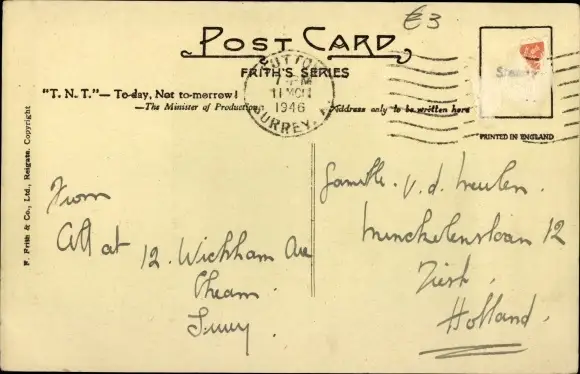 £3
POST CARD
FRITH'S SERIES
SUTTON
11 NOV
1946
SURREY.
"T. N. T."— To-day, Not to-morrow!
—The Minister of Production.
Address only to be written here
Stamp
PRINTED IN ENGLAND
F. Frith & Co., Ltd., Reigate. Copyright
From
All at 12. Wickham Ave
Cheam.
Surrey.
Familie. v. d. Meulen.
12
Holland.